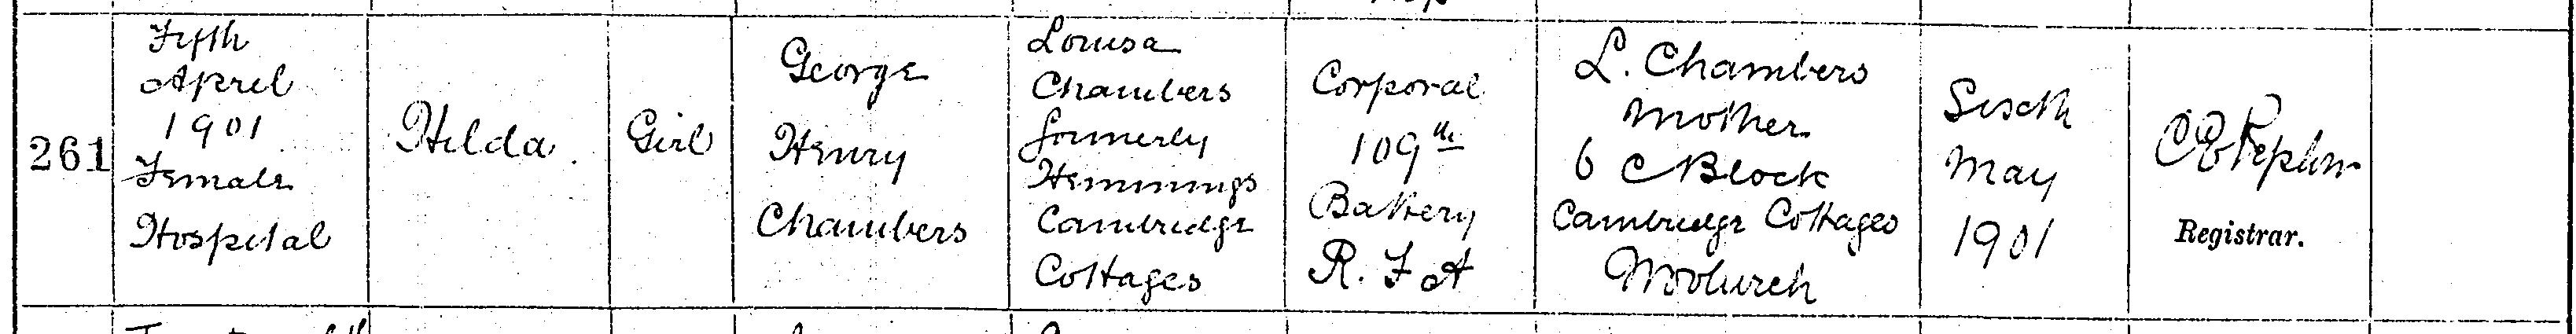 261
Fifth
April
1901
Female
Hospital
Hilda
Girl
George
Henry
Chambers
Louisa
Chambers
formerly
Hemmings
Cambridge
Cottages
Corporal
109th
Battery
R. F A
L. Chambers
Mother
6 C Block
Cambridge Cottages
Woolwich
Sixth
May
1901
Registrar.